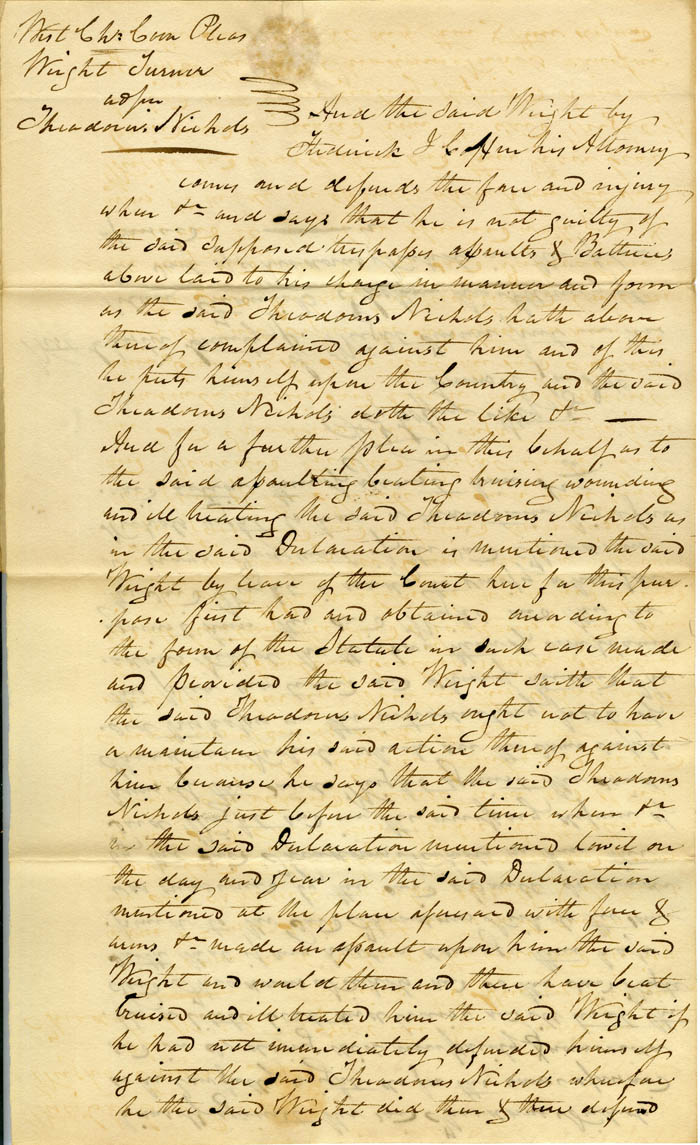 West Chr Com Pleas
Wright Turner
ads pr
Theadorus Nichols
And the said Wright by
Frederick I Coffin his Attorney
comes and defends the force and injury
when &c and says that he is not guilty of
the said supposed trespasses assaults & Batteries
above laid to his charge in manner and form
as the said Theadorus Nichols hath above
thereof complained against him and of this
he puts himself upon the Country and the said
Theadorus Nichols doth the like &c —
And for a further plea in this behalf as to
the said assaulting beating bruising wounding
and ill treating the said Theadorus Nichols as
in the said Declaration is mentioned the said
Wright by leave of the Court here for this pur-
-pose first had and obtained according to
the form of the Statute in such case made
and provided the said Wright saith that
the said Theadorus Nichols ought not to have
or maintain his said action thereof against
him because he says that the said Theadorus
Nichols just before the said time when &c
in the said Declaration mentioned towit on
the day and year in the said Declaration
mentioned at the place aforesaid with force &
arms &c made an assault upon him the said
Wright and would then and there have beat
bruised and ill treated him the said Wright if
he had not immediately defended himself
against the said Theadorus Nichols wherefore
he the said Wright did then & there defend